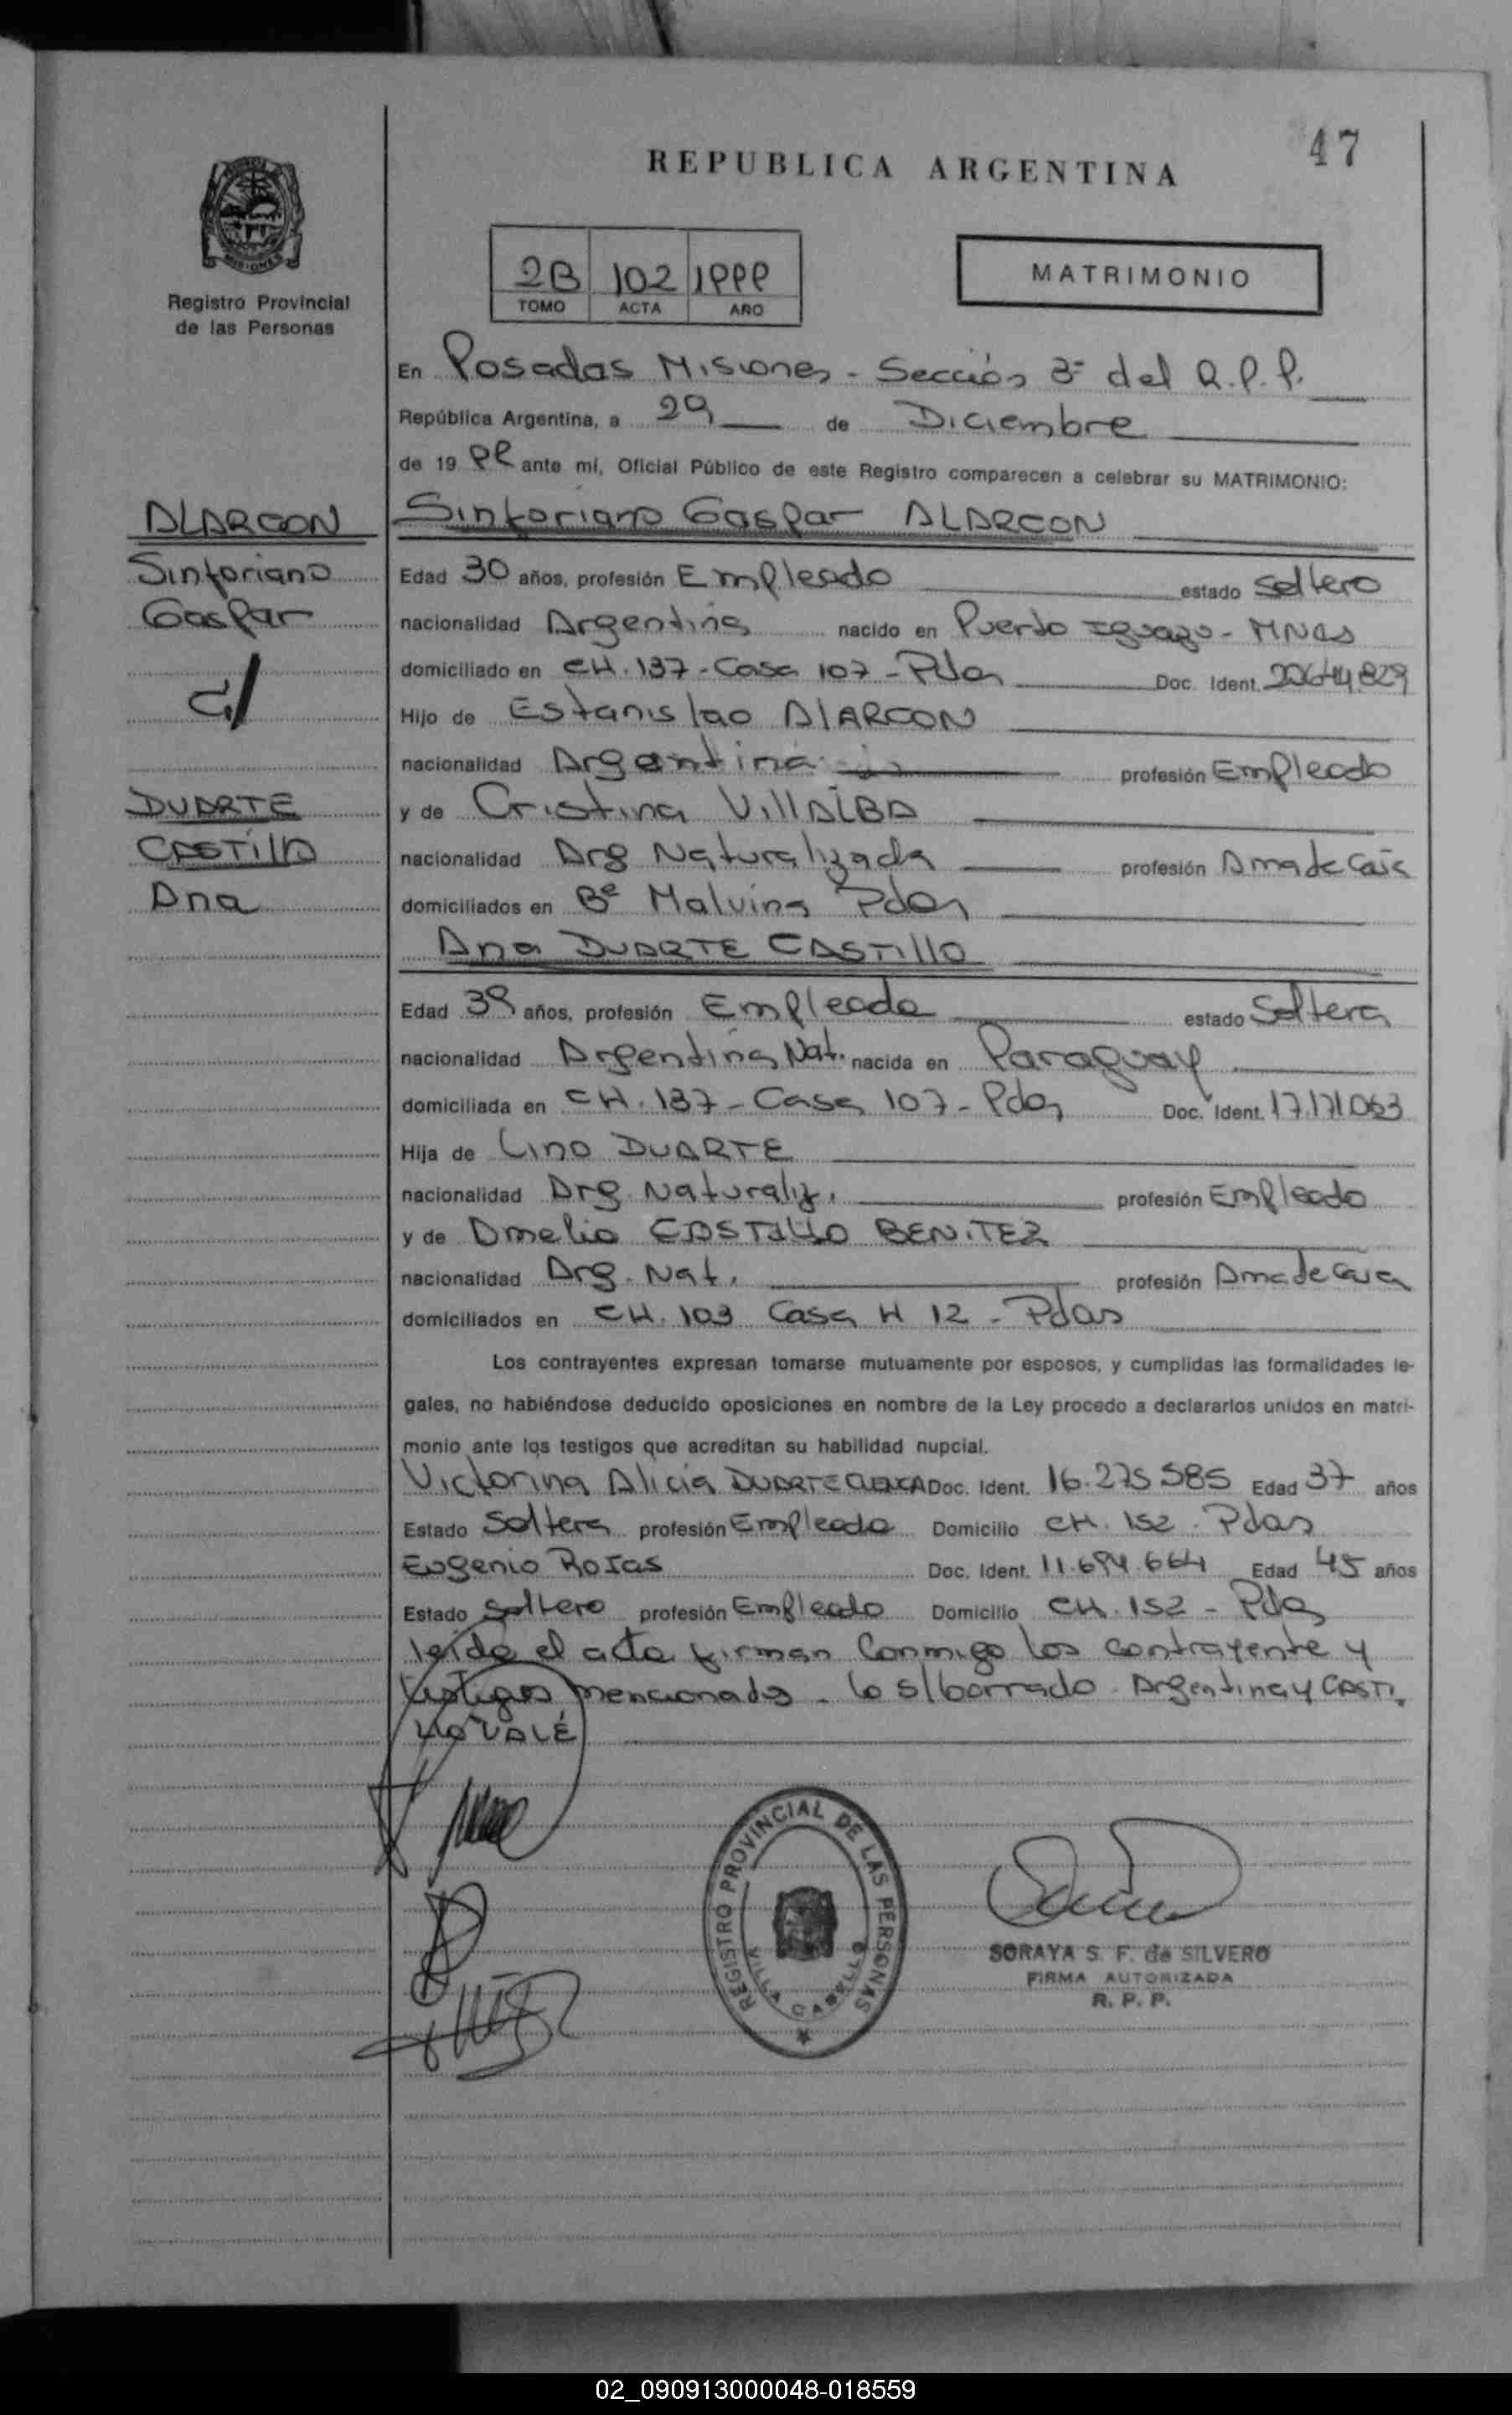 47
REPUBLICA ARGENTINA
2B 102 1999
TOMO ACTA AÑO
MATRIMONIO
MISIONES
Registro Provincial
de las Personas
En Posadas Misiones - Sección 3ª del R.P.P.
República Argentina, a 29 de Diciembre
de 19 99 ante mí, Oficial Público de este Registro comparecen a celebrar su MATRIMONIO:
ALARCON
Sinforiano
Gaspar
c/
DUARTE
CASTILLO
Ana
Sinforiano Gaspar ALARCON
Edad 30 años, profesión Empleado estado Soltero
nacionalidad Argentina nacido en Puerto Iguazu - MNES
domiciliado en CH. 137 - Casa 107 - Pdas Doc. Ident. 20.644.829
Hijo de Estanislao ALARCON
nacionalidad Argentina profesión Empleado
y de Cristina VILLALBA
nacionalidad Arg Naturalizada profesión Ama de Casa
domiciliados en Bº Malvinas Pdas
Ana DUARTE CASTILLO
Edad 39 años, profesión Empleada estado Soltera
nacionalidad Argentina Nat. nacida en Paraguay
domiciliada en CH. 137 - Casa 107 - Pdas Doc. Ident. 17.171.063
Hija de Lino DUARTE
nacionalidad Arg. Naturaliz. profesión Empleado
y de Amelia CASTILLO BENITEZ
nacionalidad Arg. Nat. profesión Ama de Casa
domiciliados en CH. 103 Casa H 12 - Pdas
Los contrayentes expresan tomarse mutuamente por esposos, y cumplidas las formalidades le-
gales, no habiéndose deducido oposiciones en nombre de la Ley procedo a declararlos unidos en matri-
monio ante los testigos que acreditan su habilidad nupcial.
Victorina Alicia DUARTE Doc. Ident. 16.275.585 Edad 37 años
Estado Soltera profesión Empleada Domicilio CH. 152 - Pdas
Eugenio ROJAS Doc. Ident. 11.694.664 Edad 45 años
Estado Soltero profesión Empleado Domicilio CH. 152 - Pdas
leída el acta firman conmigo los contrayente y
testigos mencionados - lo s/borrado - Argentina y CASTI
LLO VALE
REGISTRO PROVINCIAL DE LAS PERSONAS
VILLA CABELLO
SORAYA S. F. de SILVERO
FIRMA AUTORIZADA
R. P. P.
02_090913000048-018559